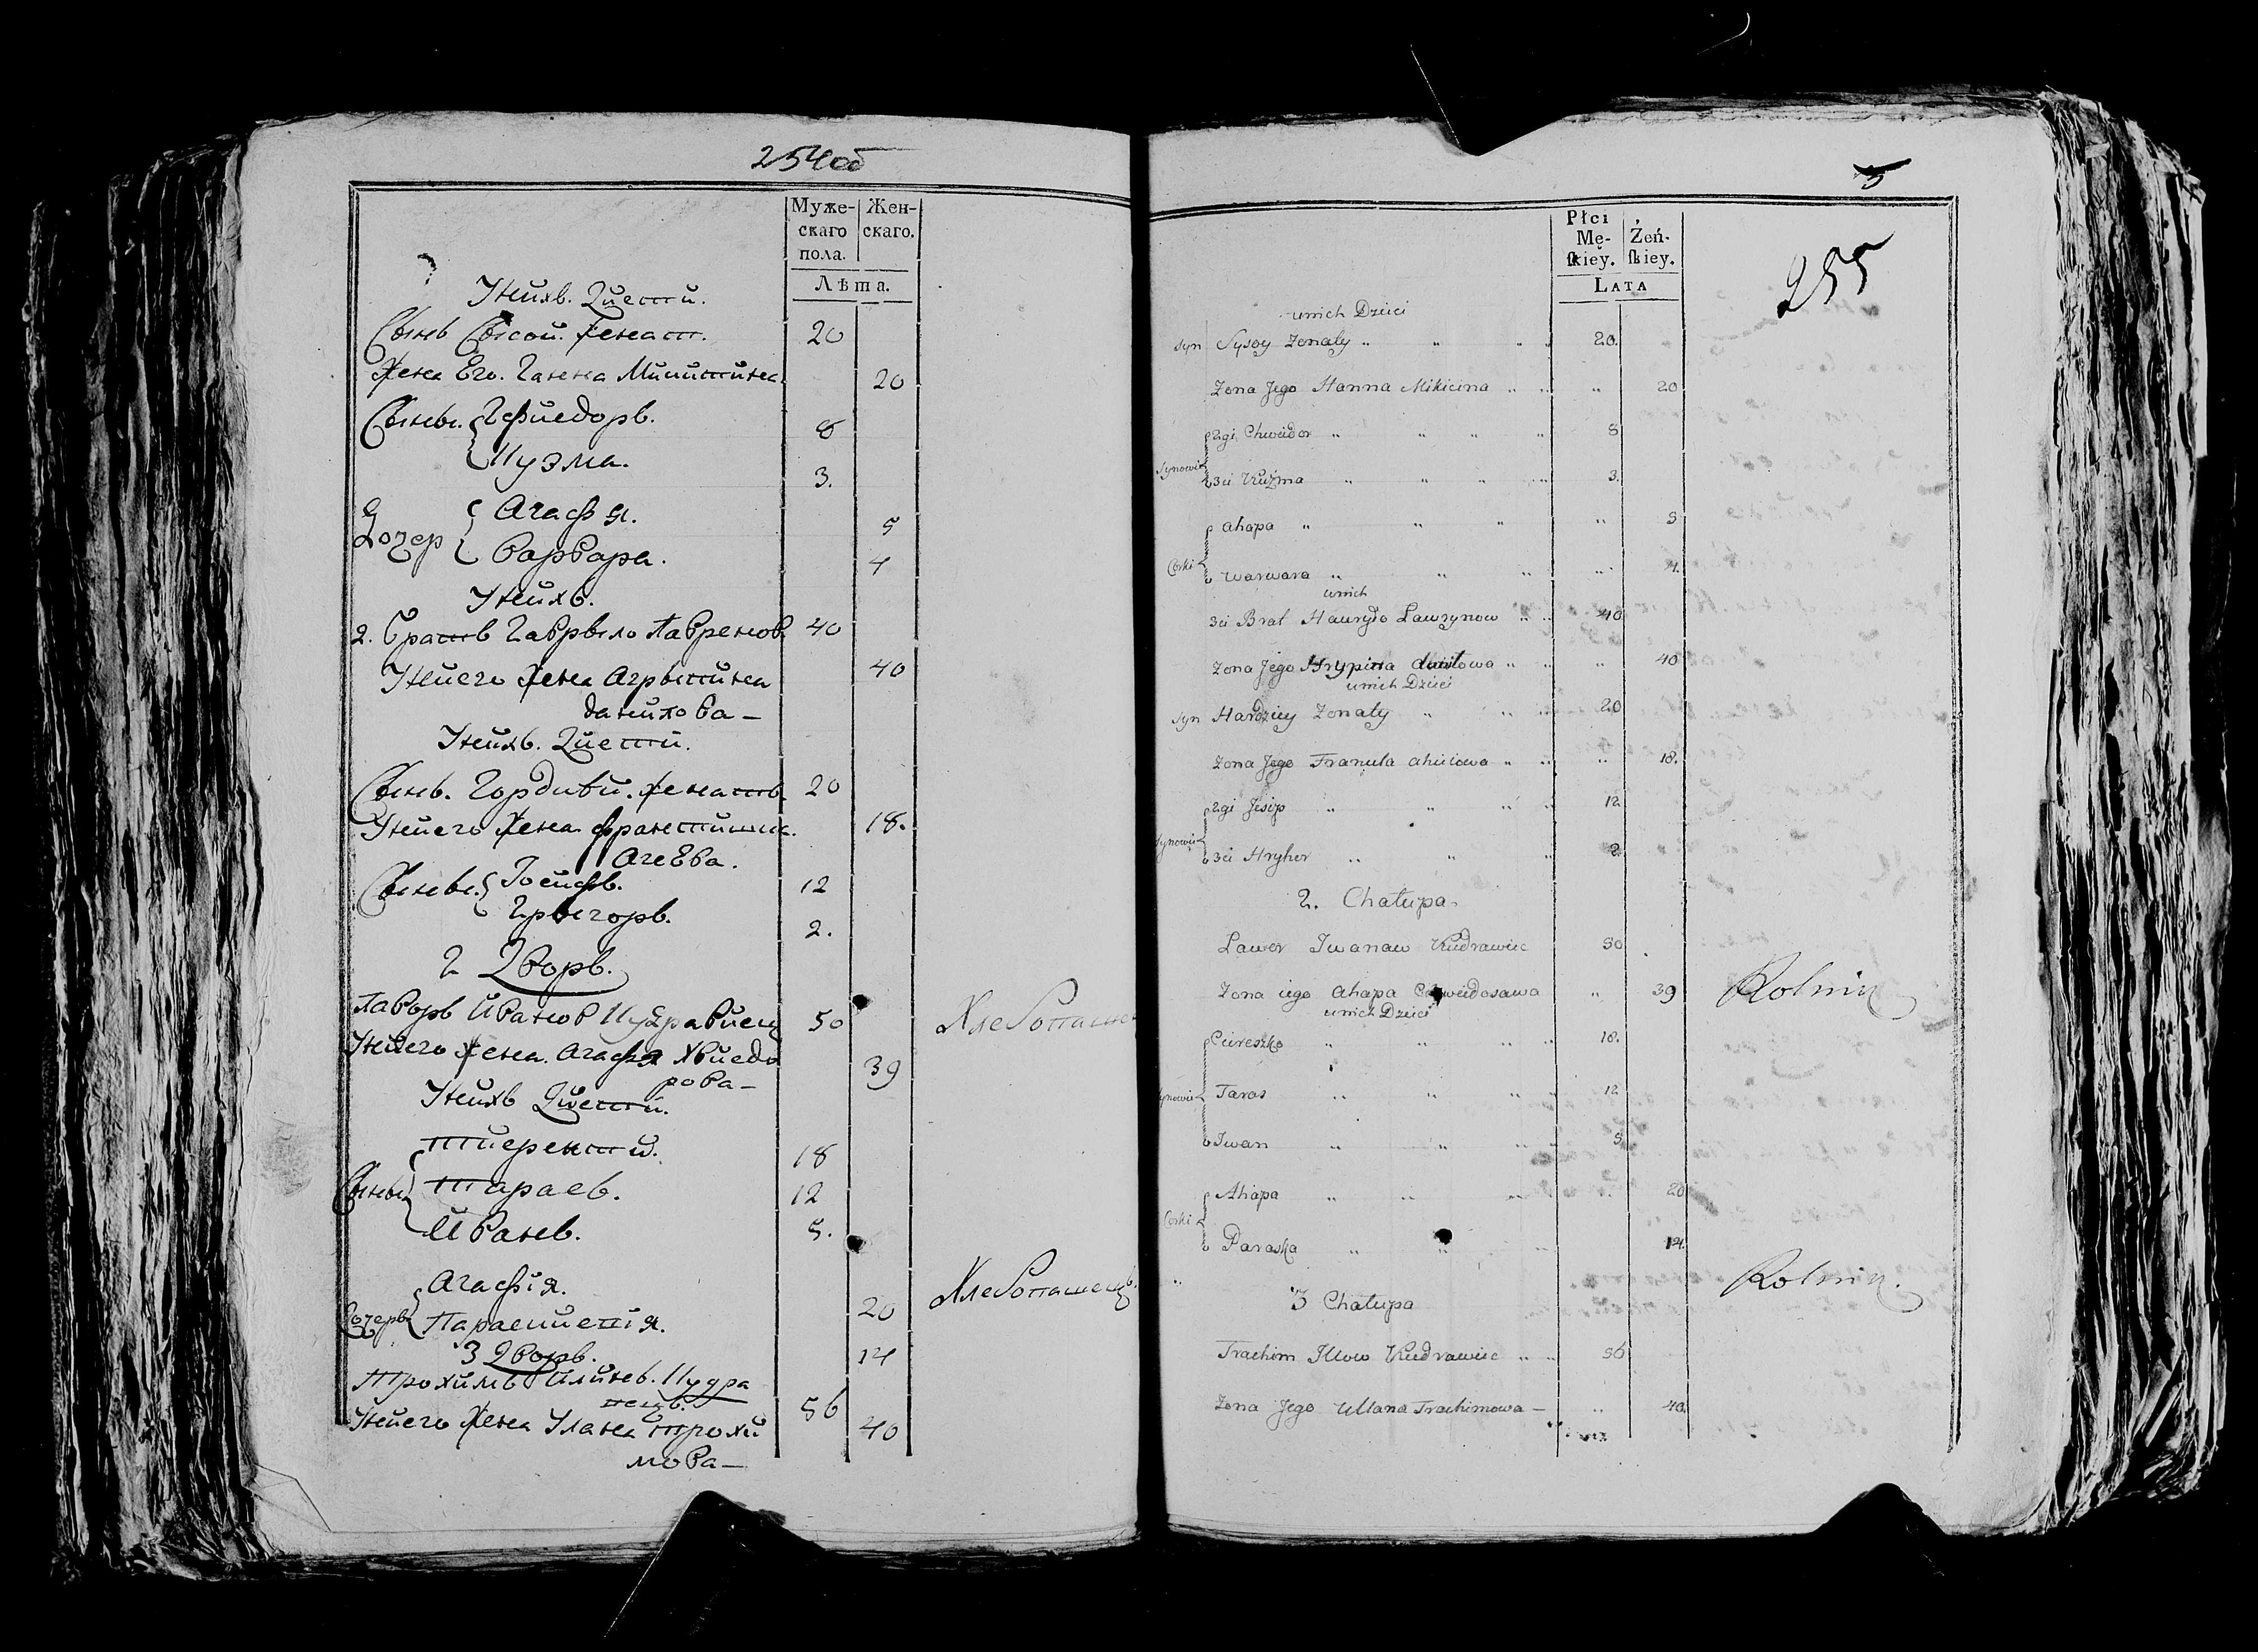 254об
Муже-
скаго
пола.
Жен-
скаго.
Лѣта.
Унихъ. Дıети.
Сынъ Сысой. женат. 20
Жена Его. Ганна Микитина 20
Сыны. Фиедоръ. 8
Кузма. 3.
Дочер Агафя. 5
Варвара. 4
Унихъ.
2. Братъ Гаврыло Лавренов 40
Унйего Жена Агрыпина 40
данилова —
Унихъ. Дıети.
Сынъ. Гордией. женатъ. 20
Унйего Жена 18.
Агеева.
Сыны. Іосифъ. 12
Грыгоръ. 2.
2 Дворъ.
Лаворъ Иванов Кудравиец 50
Унйего Жена. Агафя Хвиедо 39
рова —
Унихъ Дıети.
Сыны Тиерентий. 18
Тарасъ. 12
Иванъ. 5.
Агафія. 20
Дочеры 14
3 Дворъ.
Трохимъ Илинъ. Кудра
вецъ. 56
Унйего Жена Улана Трохи 40
мова —
Хлебопашец
Хлебопашецъ.
5
255
Płci
Mę-
skiey.
Żeń-
skiey.
LATA
unich Dzieci
syn Sysoy Zonaty 20.
Zona Jego Hanna Mikicina 20
Synowie 2gi Chwiedor 8
3ci Kuźma 3.
Corki Ahapa 5
Warwara 4.
unich
3ci Brat Hauryło Lawrynow 40
Zona Jego Hrypina daniłowa 40
unich Dzieci
syn Hardziey Zonaty 20
Zona Jego Franula ahiejowa 18.
Synowie 2gi Jesip 12
3ci Hryhor 2
2. Chałupa
Lawor Iwanaw Kudrawiec 50
Zona iego Ahapa Chwiedorawa 39
unich Dzieci
Synowie Ciereszko 18.
Taras 12
Iwan 5
Corki Ahapa 20
Paraska 14.
3 Chałupa
Trachim Illow Kudrawiec 56
Zona Jego Ullana Trachimowa — 40.
Rolnik
Rolnik.